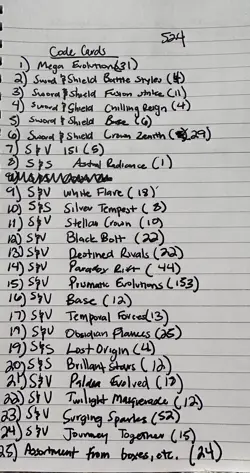 524
Code Cards
1) Mega Evolution (31)
2) Sword & Shield Battle Styles (4)
3) Sword & Shield Fusion Strike (11)
4) Sword & Shield Chilling Reign (4)
5) Sword & Shield Base (6)
6) Sword & Shield Crown Zenith (29)
7) S&V 151 (5)
8) S&S Astral Radiance (1)
9) S&V White Flare (18)
10) S&S Silver Tempest (8)
11) S&V Stellar Crown (10)
12) S&V Black Bolt (22)
13) S&V Destined Rivals (22)
14) S&V Paradox Rift (44)
15) S&V Prismatic Evolutions (153)
16) S&V Base (12)
17) S&V Temporal Forces (13)
18) S&V Obsidian Flames (25)
19) S&S Lost Origin (4)
20) S&S Brilliant Stars (12)
21) S&V Paldea Evolved (12)
22) S&V Twilight Masquerade (12)
23) S&V Surging Sparks (52)
24) S&V Journey Together (15)
25) Assortment from boxes, etc. (24)